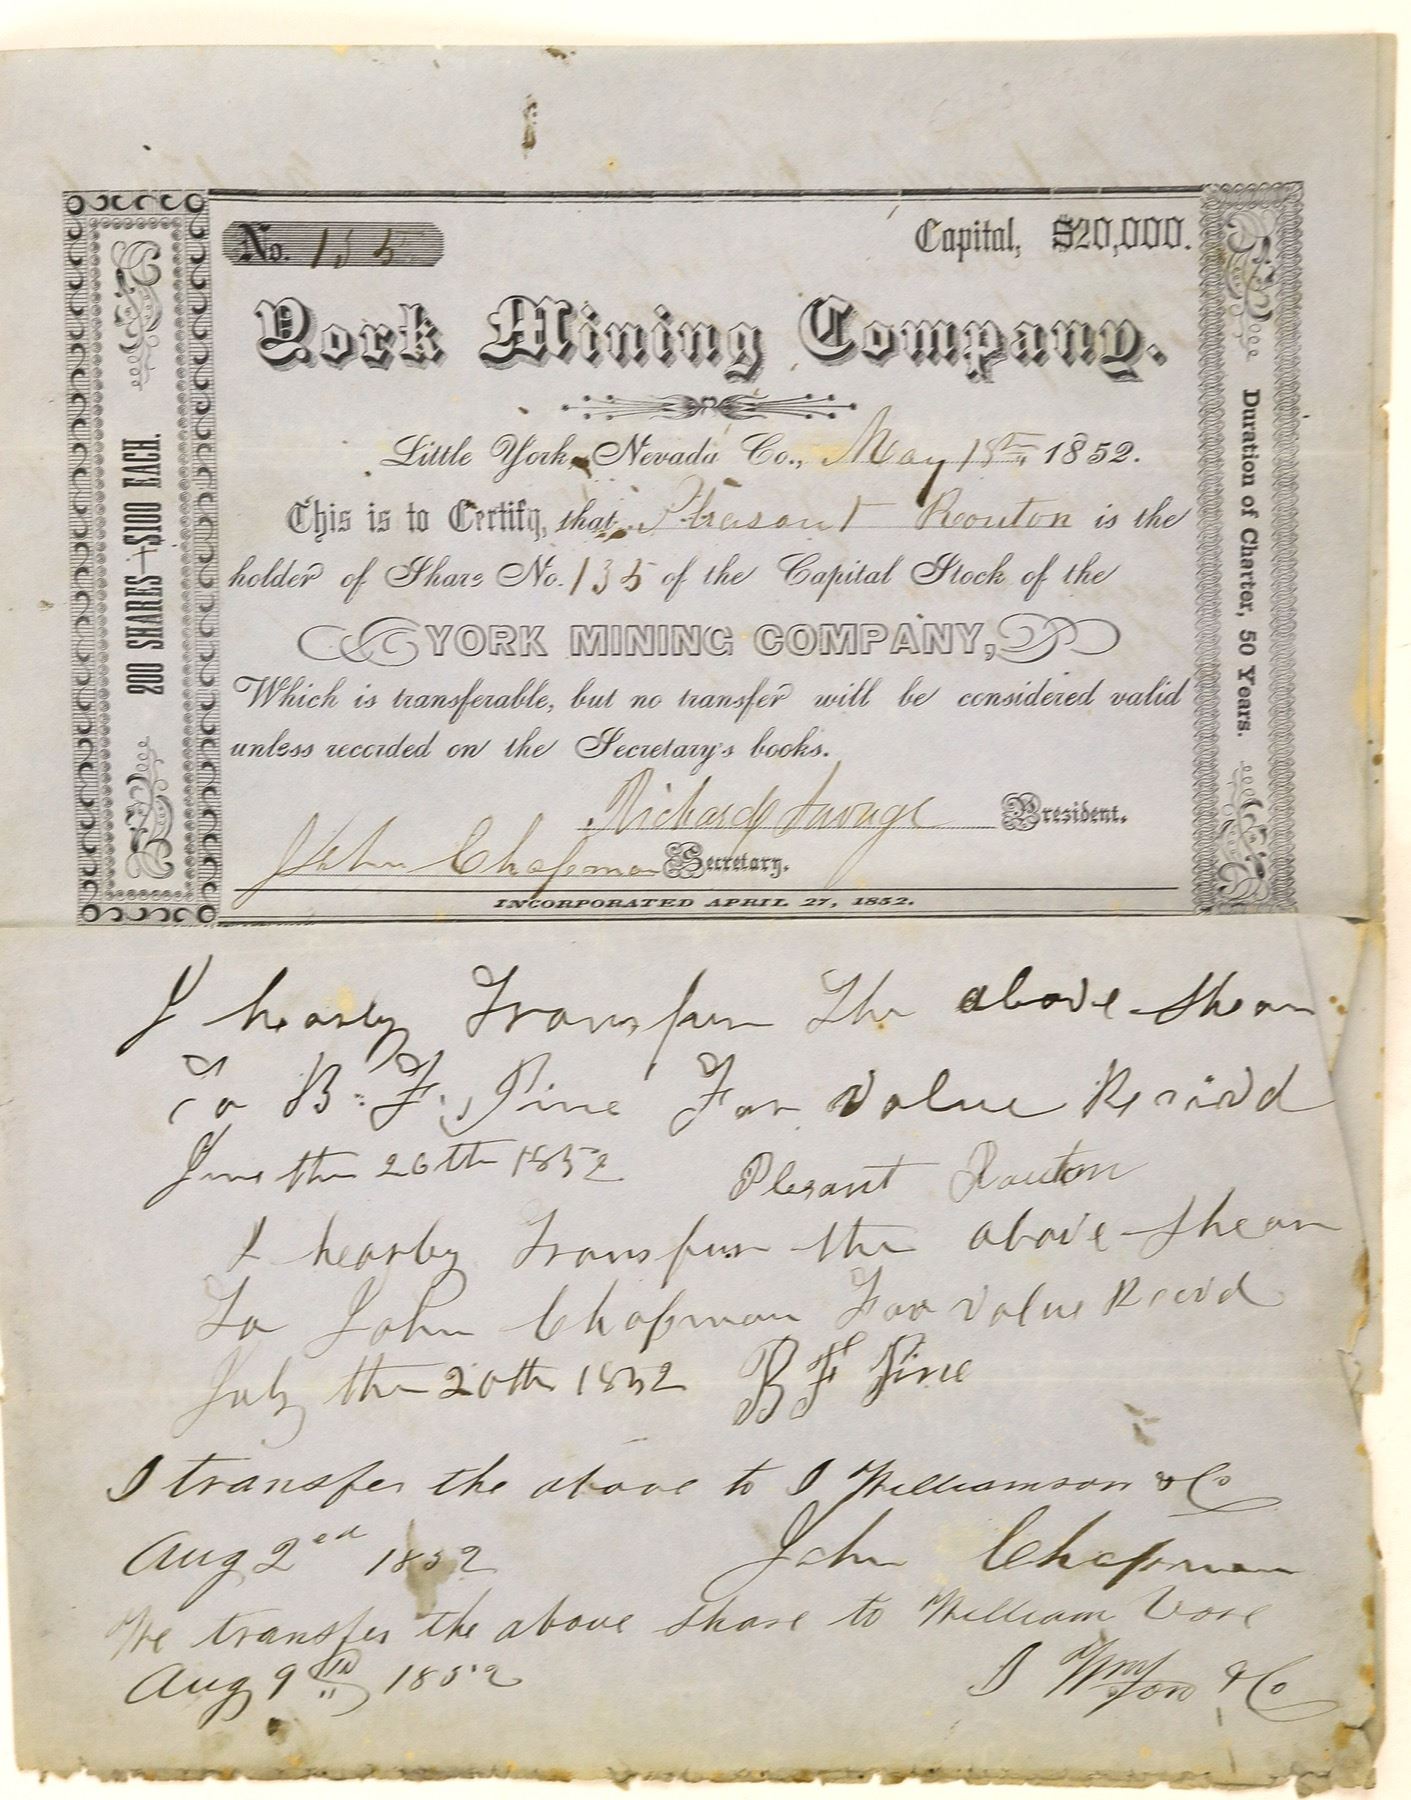 No. 135
Capital, $20,000.
York Mining Company.
Little York, Nevada Co., May 18th, 1852.
This is to Certify, that Pleasant Routon is the
holder of Share No. 135 of the Capital Stock of the
YORK MINING COMPANY,
Which is transferable, but no transfer will be considered valid
unless recorded on the Secretary's books.
Richard Savage President.
John Chapman Secretary.
INCORPORATED APRIL 27, 1852.
200 SHARES—$100 EACH.
Duration of Charter, 50 Years.
I hearby Transfur The above Shear
To B. F. Pine For value Recivd
June the 26th 1852 Plesant Routon
I hearby Transfur the above Shear
To John Chapman For value Recivd
July the 20th 1852 B F Pine
I transfer the above to J Williamson & Co
Aug 2ed 1852 John Chapman
We transfer the above share to William Vore
Aug 9th 1852 J Wmson & Co